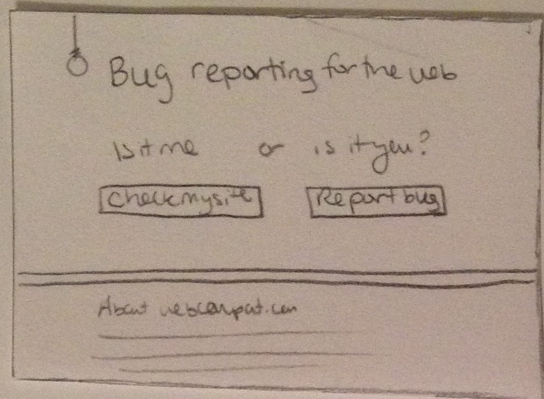 Bug reporting for the web
Is it me or is it you?
Check my site Report bug
About webcompat.com